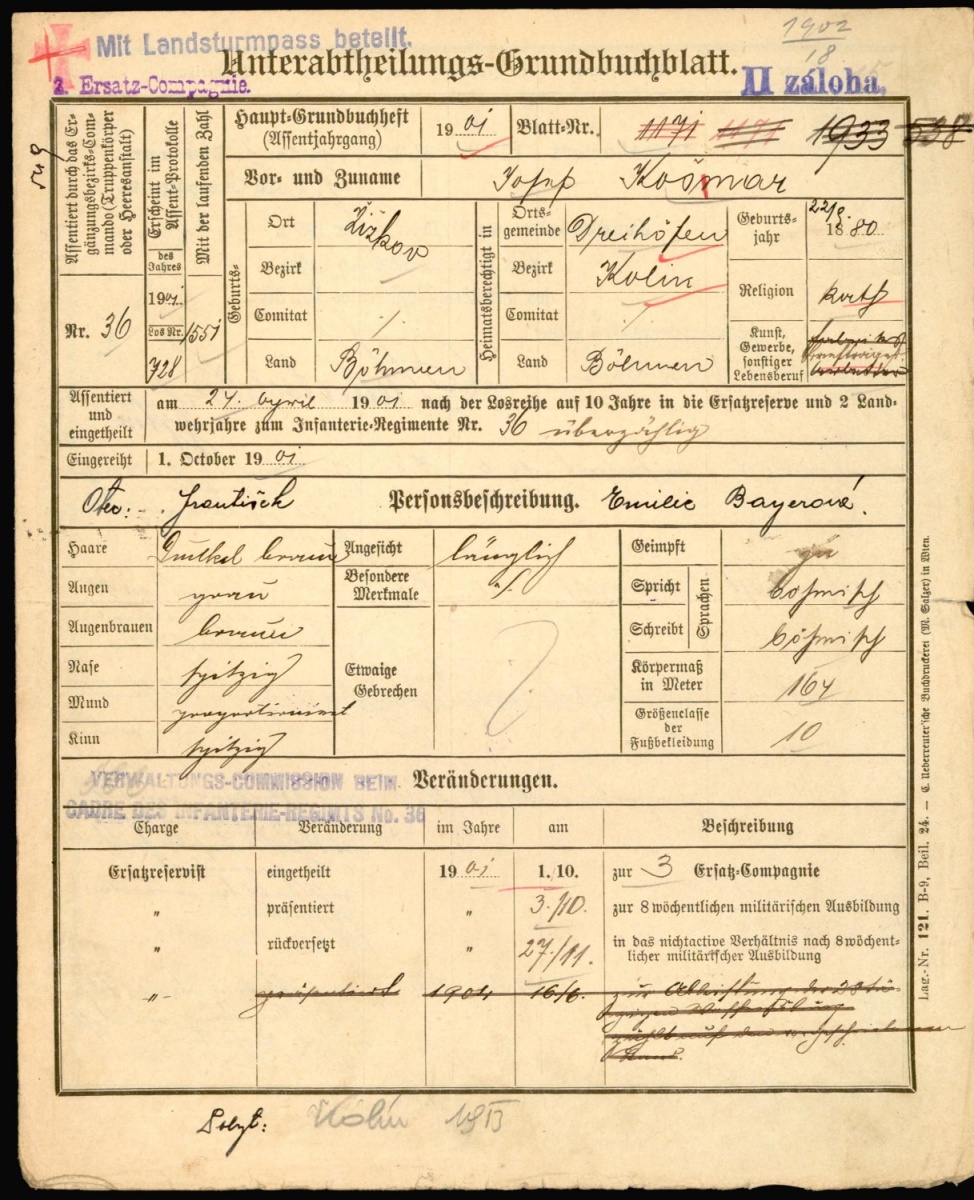 1902
18
Mit Landsturmpass beteilt.
Unterabtheilungs-Grundbuchblatt.
2. Ersatz-Compagnie.
II záloha.
Assentiert durch das Ergänzungsbezirks-Commando (Truppenkörper oder Heeresanstalt)
Nr. 36
Erscheint im Assent-Protokolle
des Jahres
1901
Los Nr.
728
Mit der laufenden Zahl
1551
Haupt-Grundbuchheft
(Assentjahrgang)
1901
Blatt-Nr.
1171 1171 1933 538
Vor- und Zuname
Josef Košmar
Geburts-
Ort Žižkov
Bezirk
Comitat ./.
Land Böhmen
Heimatsberechtigt in
Ortsgemeinde Dreihöfen
Bezirk Kolin
Comitat ./.
Land Böhmen
Geburtsjahr 1880
Religion kath
Kunst, Gewerbe, sonstiger Lebensberuf
Assentiert und eingetheilt
am 24. April 1901 nach der Losreihe auf 10 Jahre in die Ersatzreserve und 2 Land-
wehrjahre zum Infanterie-Regimente Nr. 36 überzählig
Eingereiht 1. October 1901
Otec: Frantisek Personsbeschreibung. Emilie Bayerová.
Haare Dunkel braun
Augen grau
Augenbrauen braun
Nase spitzig
Mund proportionirt
Kinn spitzig
Angesicht länglich
Besondere Merkmale ./.
Etwaige Gebrechen
Geimpft ja
Spricht böhmisch
Sprachen
Schreibt böhmisch
Körpermaß in Meter 164
Größenclasse der Fußbekleidung 10
VERWALTUNGS-COMMISSION BEIM
CADRE DES INFANTERIE-REGIMTS No. 36
Veränderungen.
Charge Veränderung im Jahre am Beschreibung
Ersatzreservist eingetheilt 1901 1./10. zur 3 Ersatz-Compagnie
" präsentiert " 3./10. zur 8 wöchentlichen militärischen Ausbildung
" rückversetzt " 27./11. in das nichtactive Verhältnis nach 8 wöchent-
licher militärischer Ausbildung
" präsentiert 1904 16/6. zur Ableistung der
Pobyt: Kolin
Lag.-Nr. 121. B-9, Beil. 24. — C. Ueberreuter'sche Buchdruckerei (M. Salzer) in Wien.